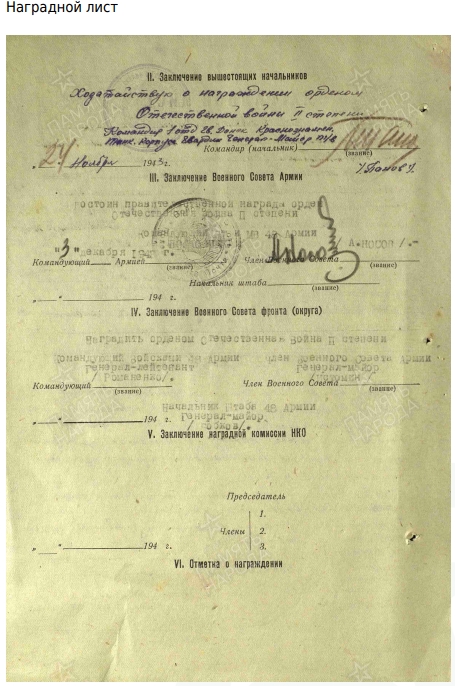 Наградной лист
II. Заключение вышестоящих начальников
Ходатайствую о награждении орденом
Отечественной войны II степени
Командир 1 отд. Гв. Донск. Краснознамен.
Танк. корпуса Гвардии Генерал-Майор т/в
Командир (начальник)
(звание)
"24" Ноября 1943 г.
/Панов/
III. Заключение Военного Совета Армии
достоин правительственной награды орден
Отечественная война II степени
48 Армии
"3" декабря 194 г.
/-.
Командующий Армией Член Военного Совета
(звание) (звание)
Начальник штаба
(звание)
" " 194 г.
IV. Заключение Военного Совета фронта (округа)
Наградить орденом Отечественная Война II степени
Командующий Войсками 48 Армии Член Военного Совета Армии
Генерал-лейтенант Генерал-майор
/Романенко/
Командующий Член Военного Совета
(звание) (звание)
Начальник Штаба 48 Армии
" " 194 г. Генерал-майор
V. Заключение наградной комиссии НКО
Председатель
1.
Члены 2.
3.
" " 194 г.
VI. Отметка о награждении